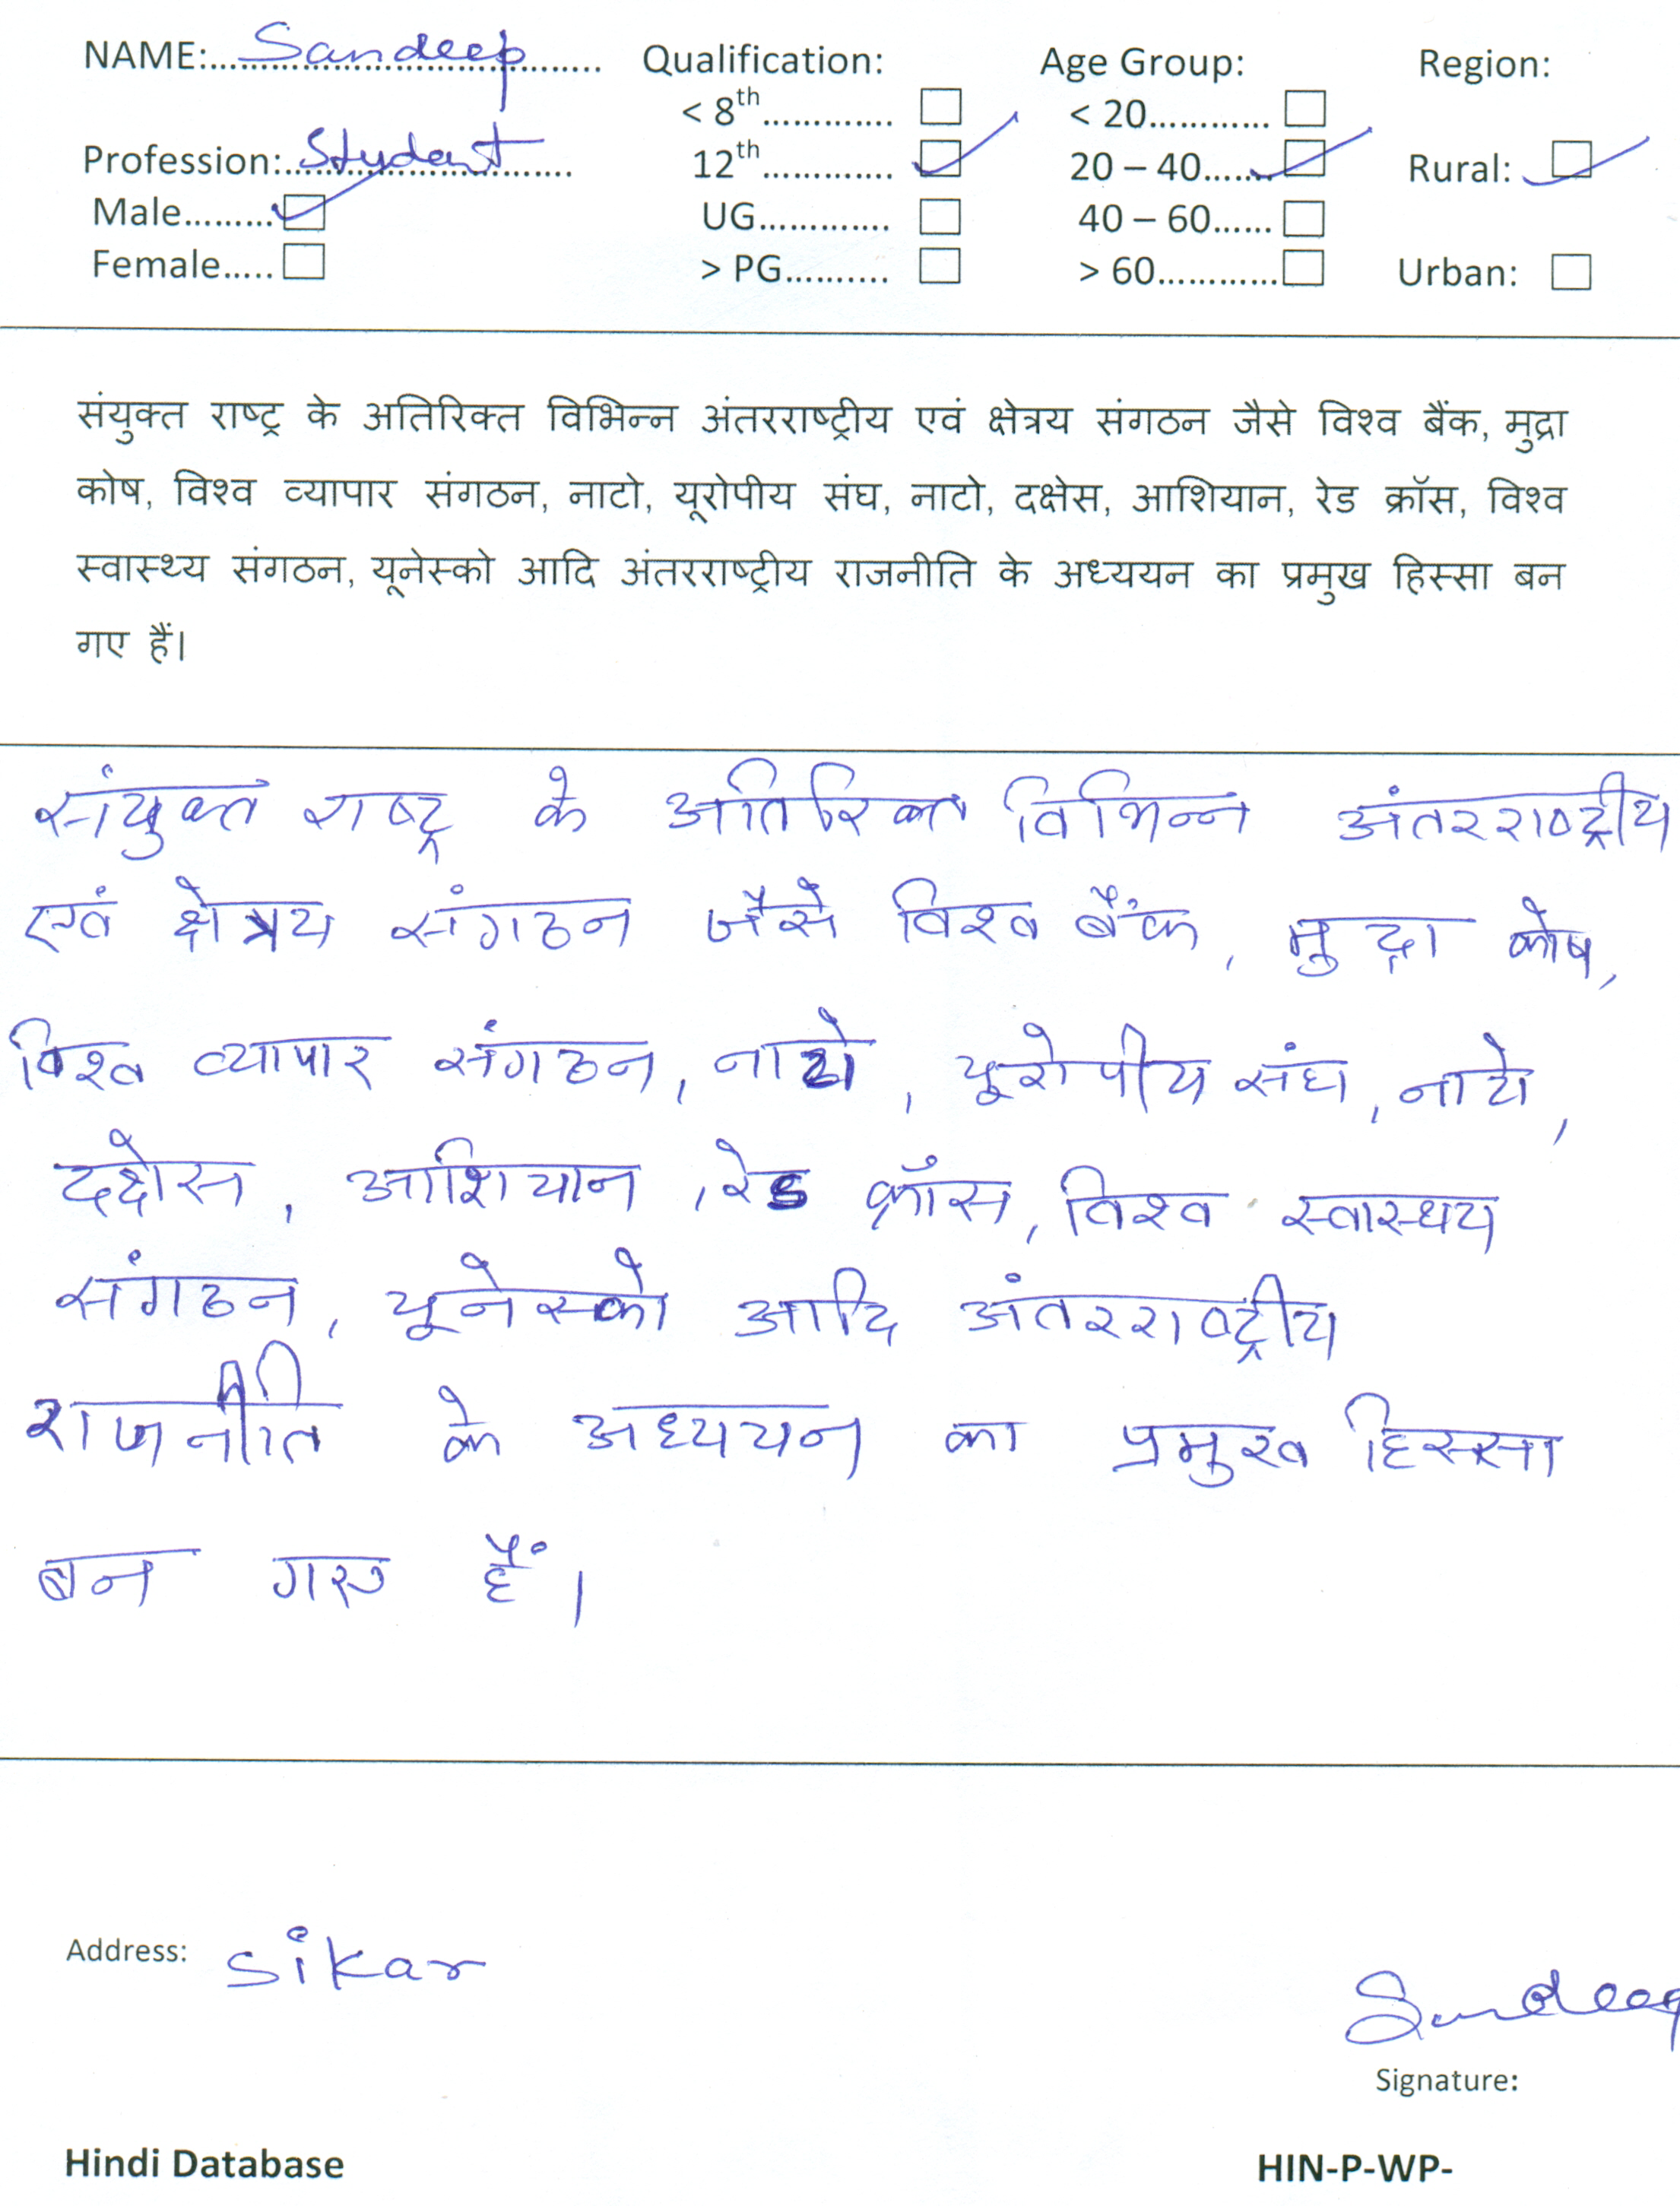 NAME: Sandeep Qualification: Age Group: Region:
< 8th............. < 20............
Profession: Student 12th............. 20 – 40....... Rural:
Male......... UG............. 40 – 60......
Female..... > PG.......... > 60............ Urban:
संयुक्त राष्ट्र के अतिरिक्त विभिन्न अंतरराष्ट्रीय एवं क्षेत्रय संगठन जैसे विश्व बैंक, मुद्रा
कोष, विश्व व्यापार संगठन, नाटो, यूरोपीय संघ, नाटो, दक्षेस, आशियान, रेड क्रॉस, विश्व
स्वास्थ्य संगठन, यूनेस्को आदि अंतरराष्ट्रीय राजनीति के अध्ययन का प्रमुख हिस्सा बन
गए हैं।
संयुक्त राष्ट्र के अतिरिक्त विभिन्न अंतरराष्ट्रीय
एवं क्षेत्रय संगठन जैसे विश्व बैंक, मुद्रा कोष,
विश्व व्यापार संगठन, नाटो, यूरोपीय संघ, नाटो,
दक्षेस, आशियान, रेड क्रॉस, विश्व स्वास्थय
संगठन, यूनेस्को आदि अंतरराष्ट्रीय
राजनीति के अध्ययन का प्रमुख हिस्सा
बन गए हैं।
Address: Sikar
Sandeep
Signature:
Hindi Database HIN-P-WP-